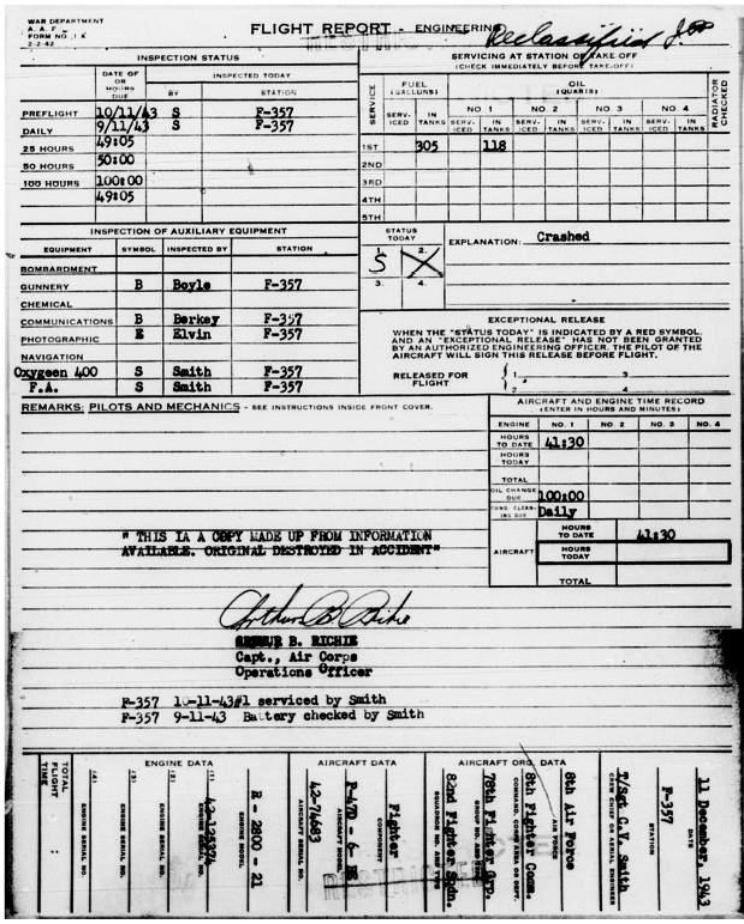 WAR DEPARTMENT
A. A. F.
FORM NO. 1 A
2-2-42
FLIGHT REPORT - ENGINEERING
Declassified
INSPECTION STATUS
DATE OF OR HOURS DUE
INSPECTED TODAY
BY
STATION
PREFLIGHT 10/11/43 S F-357
DAILY 9/11/43 S F-357
25 HOURS 49:05
50 HOURS 50:00
100 HOURS 100:00
49:05
SERVICING AT STATION OF TAKE OFF
(CHECK IMMEDIATELY BEFORE TAKE-OFF)
SERVICE
FUEL (GALLONS)
OIL (QUARTS)
RADIATOR CHECKED
NO. 1 NO. 2 NO. 3 NO. 4
SERV-ICED IN TANKS SERV-ICED IN TANKS SERV-ICED IN TANKS SERV-ICED IN TANKS SERV-ICED IN TANKS
1ST 305 118
2ND
3RD
4TH
5TH
INSPECTION OF AUXILIARY EQUIPMENT
EQUIPMENT SYMBOL INSPECTED BY STATION
BOMBARDMENT
GUNNERY B Boyle F-357
CHEMICAL
COMMUNICATIONS B Berkey F-357
PHOTOGRAPHIC E Elvin F-357
NAVIGATION
Oxygeen 400 S Smith F-357
F.A. S Smith F-357
STATUS TODAY
1. 2.
S X
3. 4.
EXPLANATION: Crashed
EXCEPTIONAL RELEASE
WHEN THE "STATUS TODAY" IS INDICATED BY A RED SYMBOL, AND AN "EXCEPTIONAL RELEASE" HAS NOT BEEN GRANTED BY AN AUTHORIZED ENGINEERING OFFICER, THE PILOT OF THE AIRCRAFT WILL SIGN THIS RELEASE BEFORE FLIGHT.
RELEASED FOR FLIGHT
1. 3.
2. 4
REMARKS: PILOTS AND MECHANICS - SEE INSTRUCTIONS INSIDE FRONT COVER.
AIRCRAFT AND ENGINE TIME RECORD
(ENTER IN HOURS AND MINUTES)
ENGINE NO. 1 NO. 2 NO. 3 NO. 4
HOURS TO DATE 41:30
HOURS TODAY
TOTAL
OIL CHANGE DUE 100:00
Daily
AIRCRAFT
HOURS TO DATE 41:30
HOURS TODAY
TOTAL
" THIS IA A COPY MADE UP FROM INFORMATION
AVAILABLE. ORIGINAL DESTROYED IN ACCIDENT"
Arthur B Richie
ARTHUR B. RICHIE
Capt., Air Corps
Operations Officer
F-357 10-11-43#1 serviced by Smith
F-357 9-11-43 Battery checked by Smith
11 December, 1943
DATE
F-357
STATION
T/Sgt C.V. Smith
CREW CHIEF OR AERIAL ENGINEER
AIRCRAFT ORG. DATA
8th Air Force
AIR FORCE
8th Fighter Comm.
COMMAND, COMB AREA OR DEPT.
78th Fighter Grp.
GROUP NO. AND TYPE
82nd Fighter Sqdn.
SQUADRON NO. AND TYPE
AIRCRAFT DATA
Fighter
COMPONENT
P-47D - 6- RE
AIRCRAFT MODEL
42-74683
AIRCRAFT SERIAL NO.
ENGINE DATA
R - 2800 - 21
ENGINE MODEL
(1) 42-124374
ENGINE SERIAL NO.
(2)
ENGINE SERIAL NO.
(3)
ENGINE SERIAL NO.
(4)
ENGINE SERIAL NO.
TOTAL FLIGHT TIME